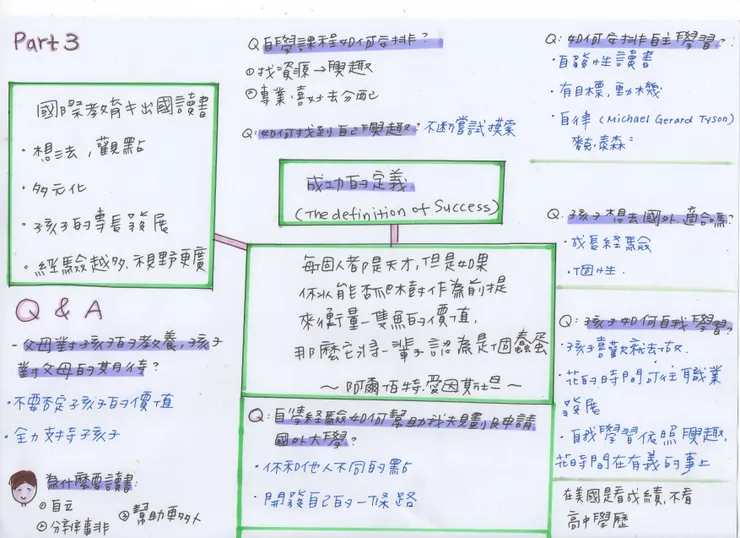 Part 3
國際教育≠出國讀書
・想法,觀點
・多元化
・孩子的專長發展
・經驗越多,視野更廣
Q & A
- 父母對孩子的教養,孩子
對父母的期待?
・不要否定孩子的價值
・全力支持孩子
為什麼要讀書:
①自立
②分辨事非
③幫助更多人
Q:自學課程如何安排?
①找資源→興趣
②專業.喜好去分配
Q:如何找到自己興趣:不斷嘗試摸索
成功的定義
(The definition of Success)
每個人都是天才,但是如果
你以能否爬樹作為前提
來衡量一隻魚的價值,
那麼它將一輩子認為是個蠢蛋
～阿爾伯特.愛因斯坦～
Q:自學經驗如何幫助找規劃及申請
國外大學?
・你和他人不同的點
・開發自己的一條路
Q:如何安排自主學習?
・自發性讀書
・有目標,動機
・自律(Michael Gerard Tyson)
麥克泰森:
Q:孩子想去國外,適合嗎?
・成長經驗
・個性.
Q:孩子如何自我學習?
・孩子喜歡就去做.
・花的時間訂在職業
發展
・自我學習依照興趣,
花時間在有義的事上
在美國是看成績,不看
高中學歷